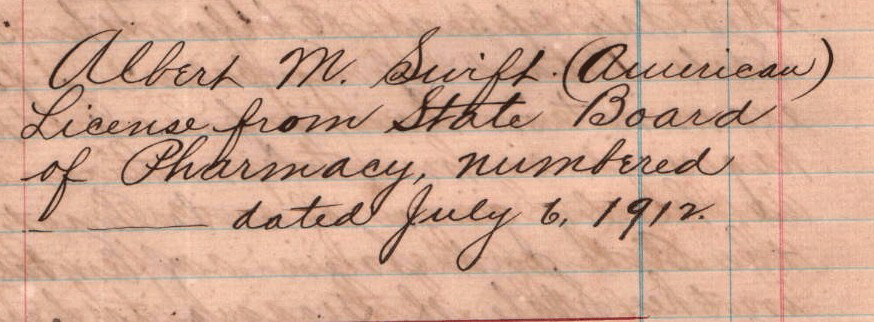 Albert M. Swift. (American)
License from State Board
of Pharmacy, numbered
_ ____ dated July 6, 1912.